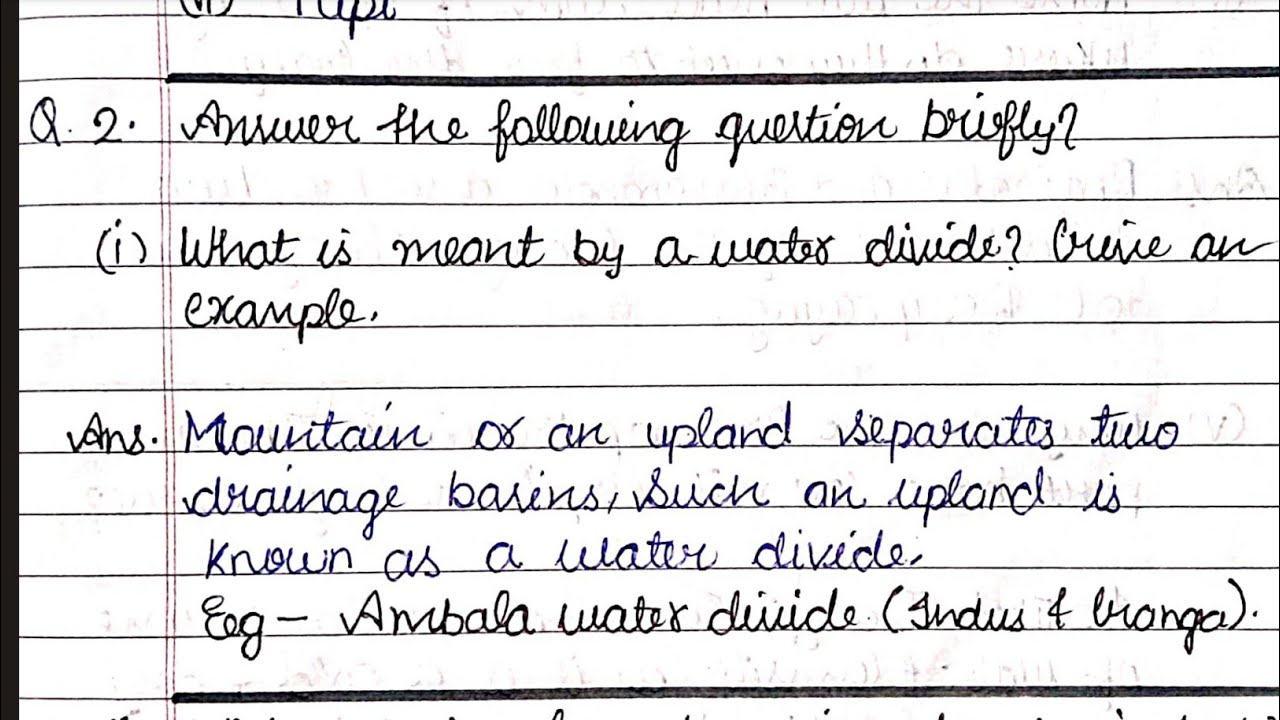 (v) Tapi
Q. 2. Answer the following question briefly?
(i) What is meant by a water divide? Give an
example.
Ans. Mountain or an upland separates two
drainage basins, such an upland is
known as a water divide.
Eg - Ambala water divide (Indus & Ganga).